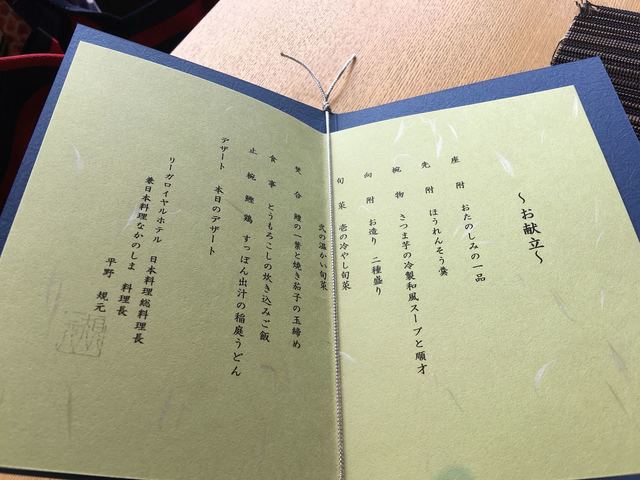 ～お献立～
座附 おたのしみの一品
先附 ほうれんそう羹
椀物 さつま芋の冷製和風スープと順才
向附 お造り 二種盛り
旬菜 壱の冷やし旬菜
弐の温かい旬菜
焚合 鱧の一葉と焼き茄子の玉締め
食事 とうもろこしの炊き込みご飯
止椀 鰹鶏 すっぽん出汁の稲庭うどん
デザート 本日のデザート
リーガロイヤルホテル 日本料理 総料理長
兼日本料理なかのしま 料理長
平野 規元